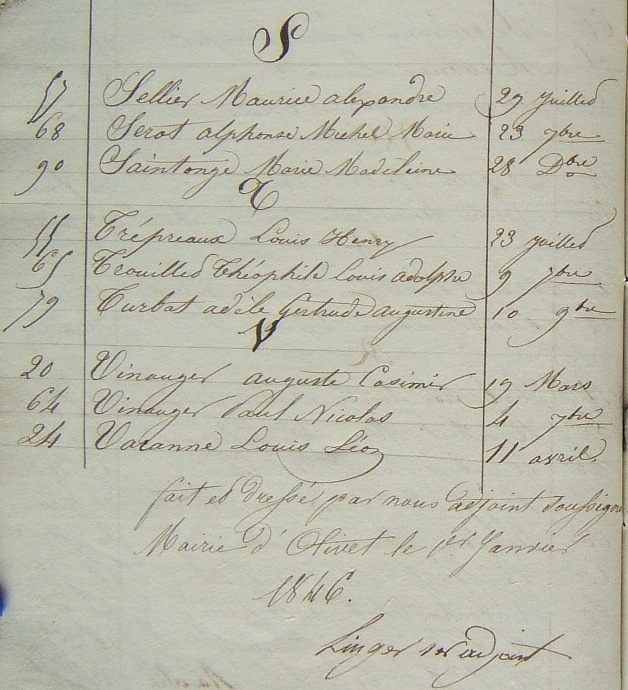 S
57 Sellier Maurice alexandre 29 Juillet
68 Serot alphonse Michel Marie 23 7bre
90 Saintonge Marie Madeleine 28 Dbre
T
55 Trépreaux Louis Henry 23 Juillet
65 Trouillet Théophile Louis adolphe 9 7bre
79 Turbat adèle Gertrude augustine 10 9bre
V
20 Vinauger auguste Casimir 19 Mars
64 Vinauger Paul Nicolas 4 7bre
24 Varanne Louis Léon 11 avril.
fait et dressé par nous adjoint soussigné
Mairie d'Olivet le 1er Janvier
1846.
Linger adjoint